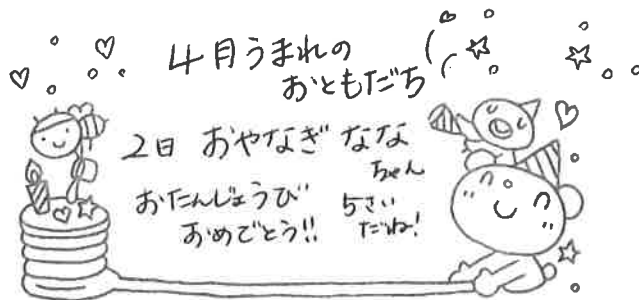 4月うまれの
おともだち
2日 おやなぎ なな
ちゃん
おたんじょうび 5さい
おめでとう!! だね!